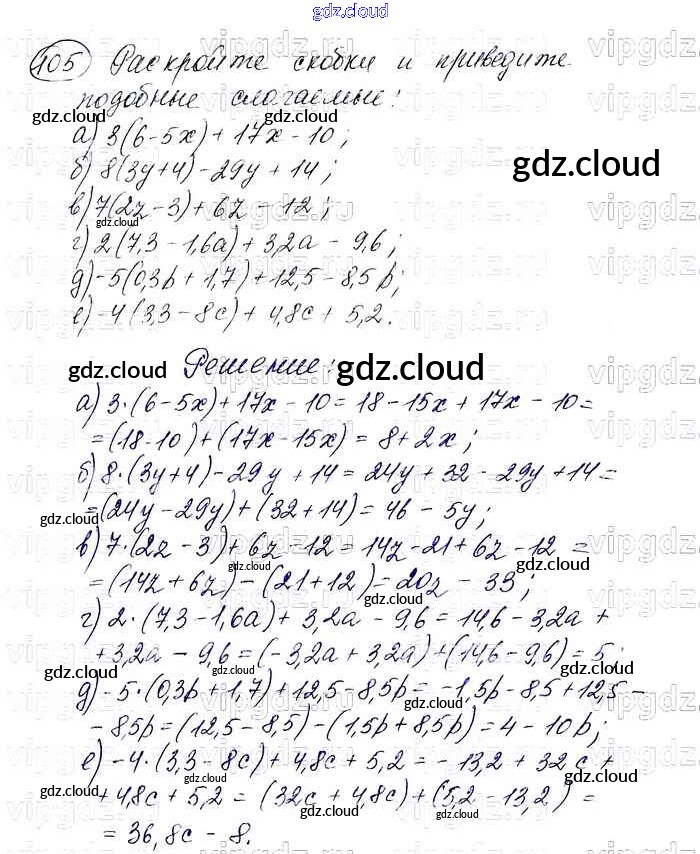 gdz.cloud
405 Раскройте скобки и приведите
подобные слагаемые:
gdz.cloud gdz.cloud
а) 3(6-5x)+17x-10;
gdz.cloud
б) 8(3y+4)-29y+14;
в) 7(2z-3)+6z-12;
gdz.cloud
г) 2(7,3-1,6a)+3,2a-9,6;
д) -5(0,3p+1,7)+12,5-8,5p;
е) -4(3,3-8c)+4,8c+5,2.
Решение:
gdz.cloud gdz.cloud
а) 3·(6-5x)+17x-10=18-15x+17x-10=
=(18-10)+(17x-15x)=8+2x;
б) 8·(3y+4)-29y+14=24y+32-29y+14=
=(24y-29y)+(32+14)=46-5y;
gdz.cloud gdz.cloud
в) 7·(2z-3)+6z-12=14z-21+6z-12=
gdz.cloud
=(14z+6z)-(21+12)=20z-33;
gdz.cloud
г) 2·(7,3-1,6a)+3,2a-9,6=14,6-3,2a+
+3,2a-9,6=(-3,2a+3,2a)+(14,6-9,6)=5;
gdz.cloud gdz.cloud gdz.cloud
д) -5·(0,3p+1,7)+12,5-8,5p=-1,5p-8,5+12,5-
-8,5p=(12,5-8,5)-(1,5p+8,5p)=4-10p;
е) -4·(3,3-8c)+4,8c+5,2=-13,2+32c+
gdz.cloud gdz.cloud
+4,8c+5,2=(32c+4,8c)+(5,2-13,2)=
gdz.cloud gdz.cloud
=36,8c-8.